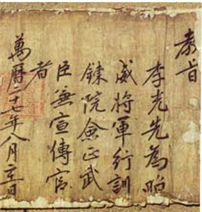 教旨
李光先為昭
威將軍行訓
鍊院僉正武
臣兼宣傳官
者
萬曆二十七年八月二日